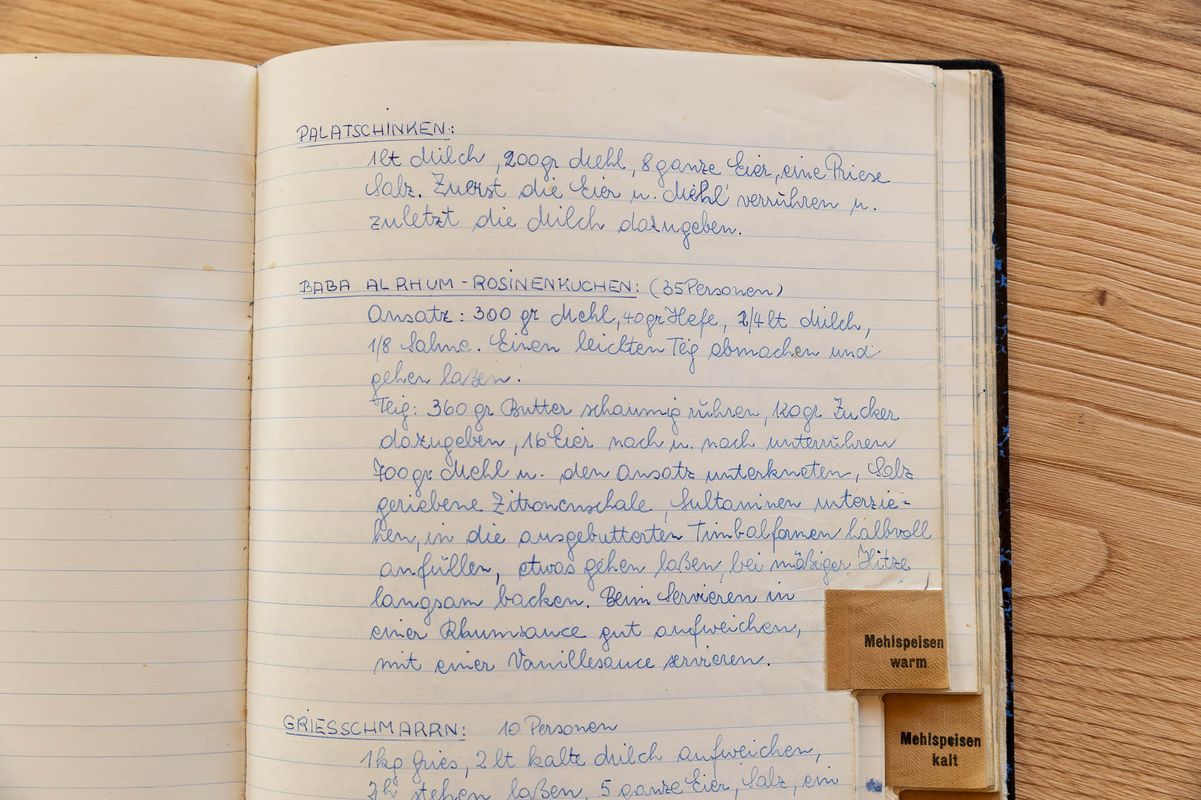 PALATSCHINKEN:
1lt Milch, 200gr Mehl, 8 ganze Eier, eine Priese
Salz. Zuerst die Eier u. Mehl verrühren u.
zuletzt die Milch dazugeben.
BABA AL RHUM - ROSINENKUCHEN: (35 Personen)
Ansatz: 300 gr Mehl, 40gr Hefe, 2/4 lt Milch,
1/8 Sahne. Einen leichten Teig abmachen und
gehen laßen.
Teig: 360 gr Butter schaumig rühren, 120gr Zucker
dazugeben, 16 Eier nach u. nach unterrühren
700gr Mehl u. den Ansatz unterkneten, Salz
geriebene Zitronenschale, Sultaninen unterzie=
hen, in die ausgebutterten Timbalformen halbvoll
anfüllen, etwas gehen laßen, bei mäßiger Hitze
langsam backen. Beim Servieren in
einer Rhumsauce gut aufweichen,
mit einer Vanillesauce servieren.
Mehlspeisen
warm
GRIESSCHMARRN: 10 Personen
1kg Gries, 2 lt kalte Milch aufweichen,
Mehlspeisen
kalt
2h stehen laßen, 5 ganze Eier, Salz, ein